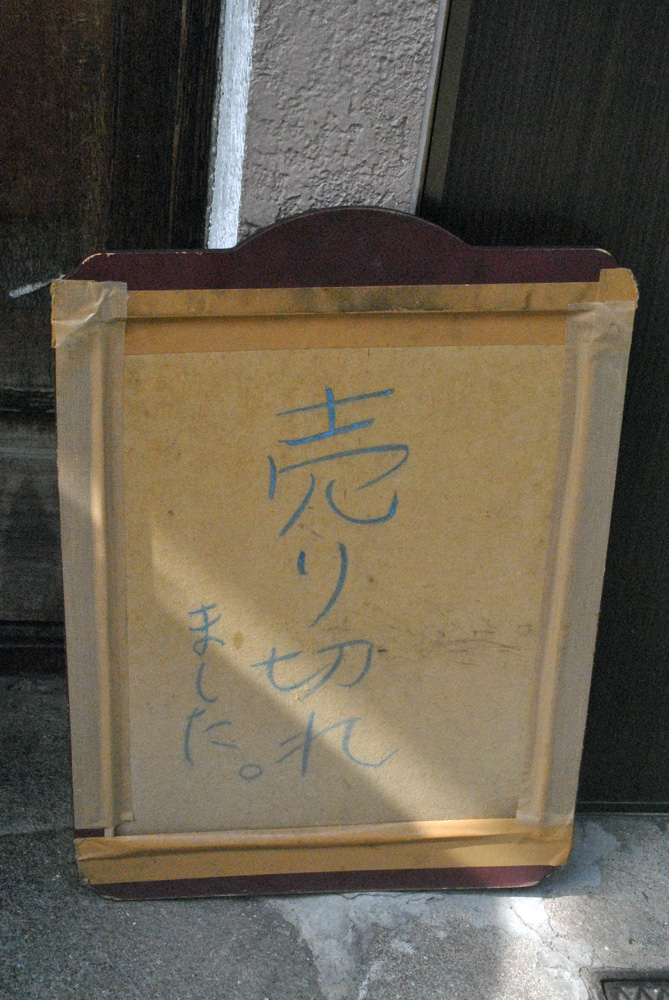 売り切れ
ました。